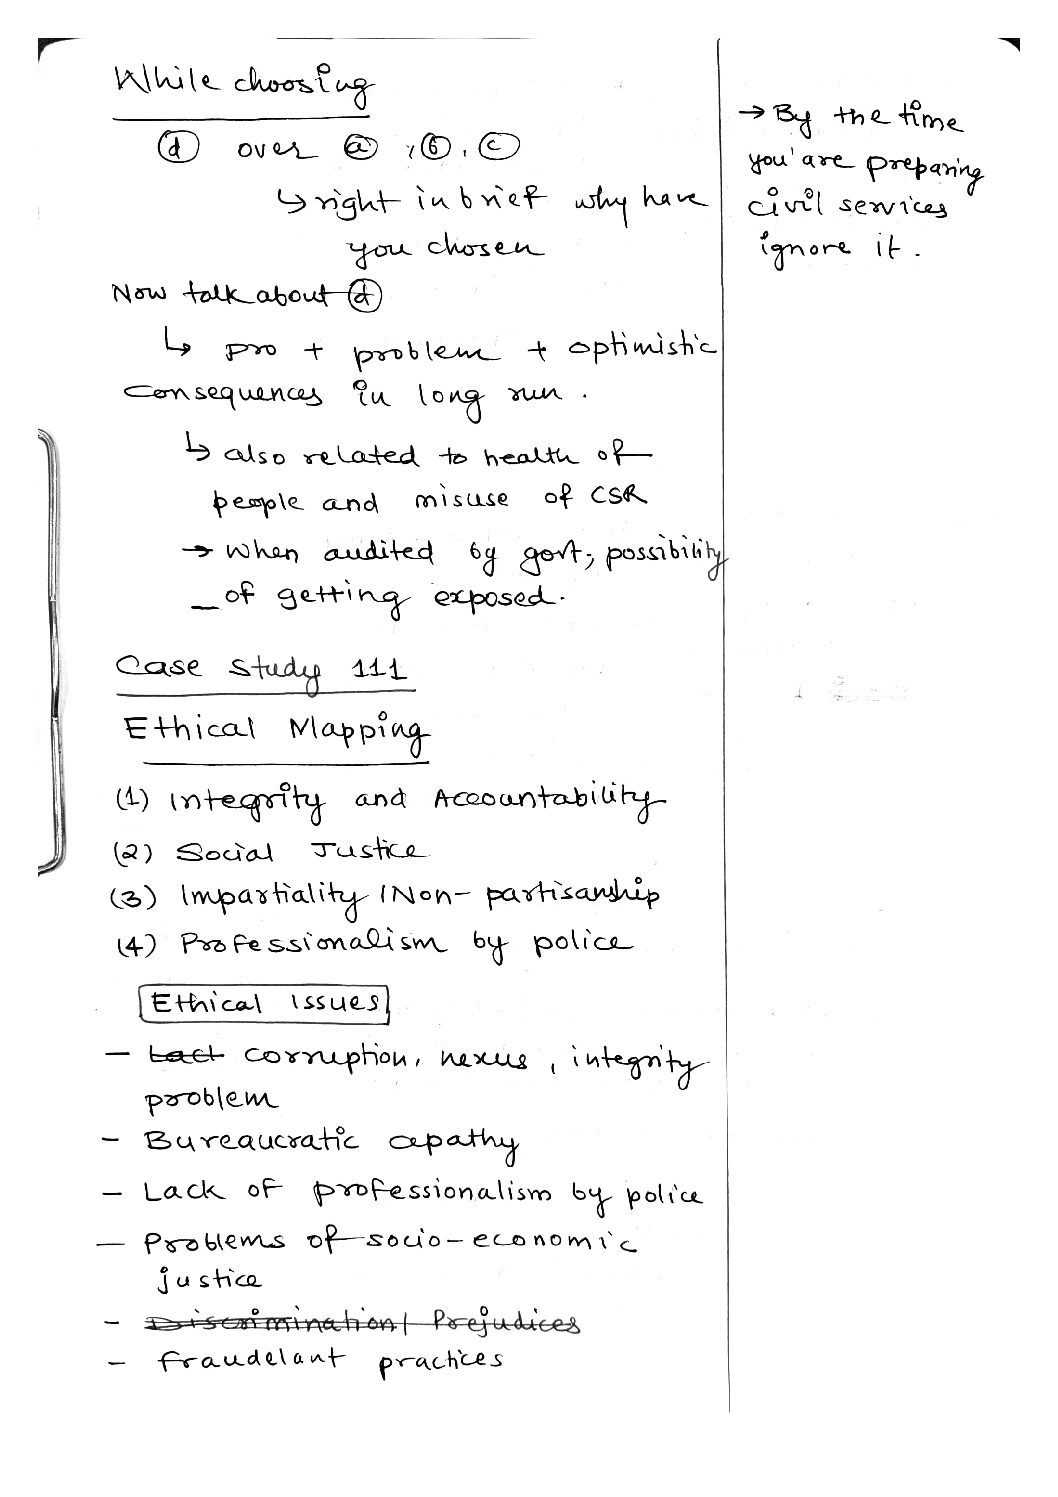 While choosing
ⓓ over ⓐ, ⓑ, ⓒ
↳ right in brief why have
you chosen
Now talk about ⓓ
↳ pro + problem + optimistic
consequences in long run.
↳ also related to health of
people and misuse of CSR
→ when audited by govt; possibility
_ of getting exposed.
Case Study 111
Ethical Mapping
(1) Integrity and Accountability
(2) Social Justice
(3) Impartiality / Non-partisanship
(4) Professionalism by police
Ethical Issues
- Lact corruption, nexus, integrity
problem
- Bureaucratic apathy
- Lack of professionalism by police
- Problems of socio-economic
justice
- Discrimination / Prejudices
- fraudelant practices
→ By the time
you are preparing
civil services
ignore it.